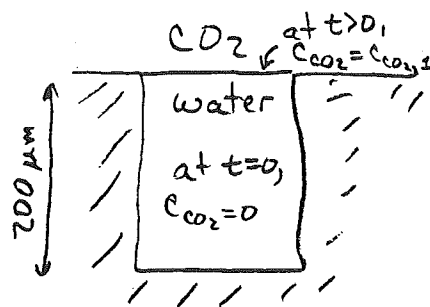 CO2
at t>0,
C CO2 = C CO2,1
water
at t=0,
C CO2 = 0
200 μm